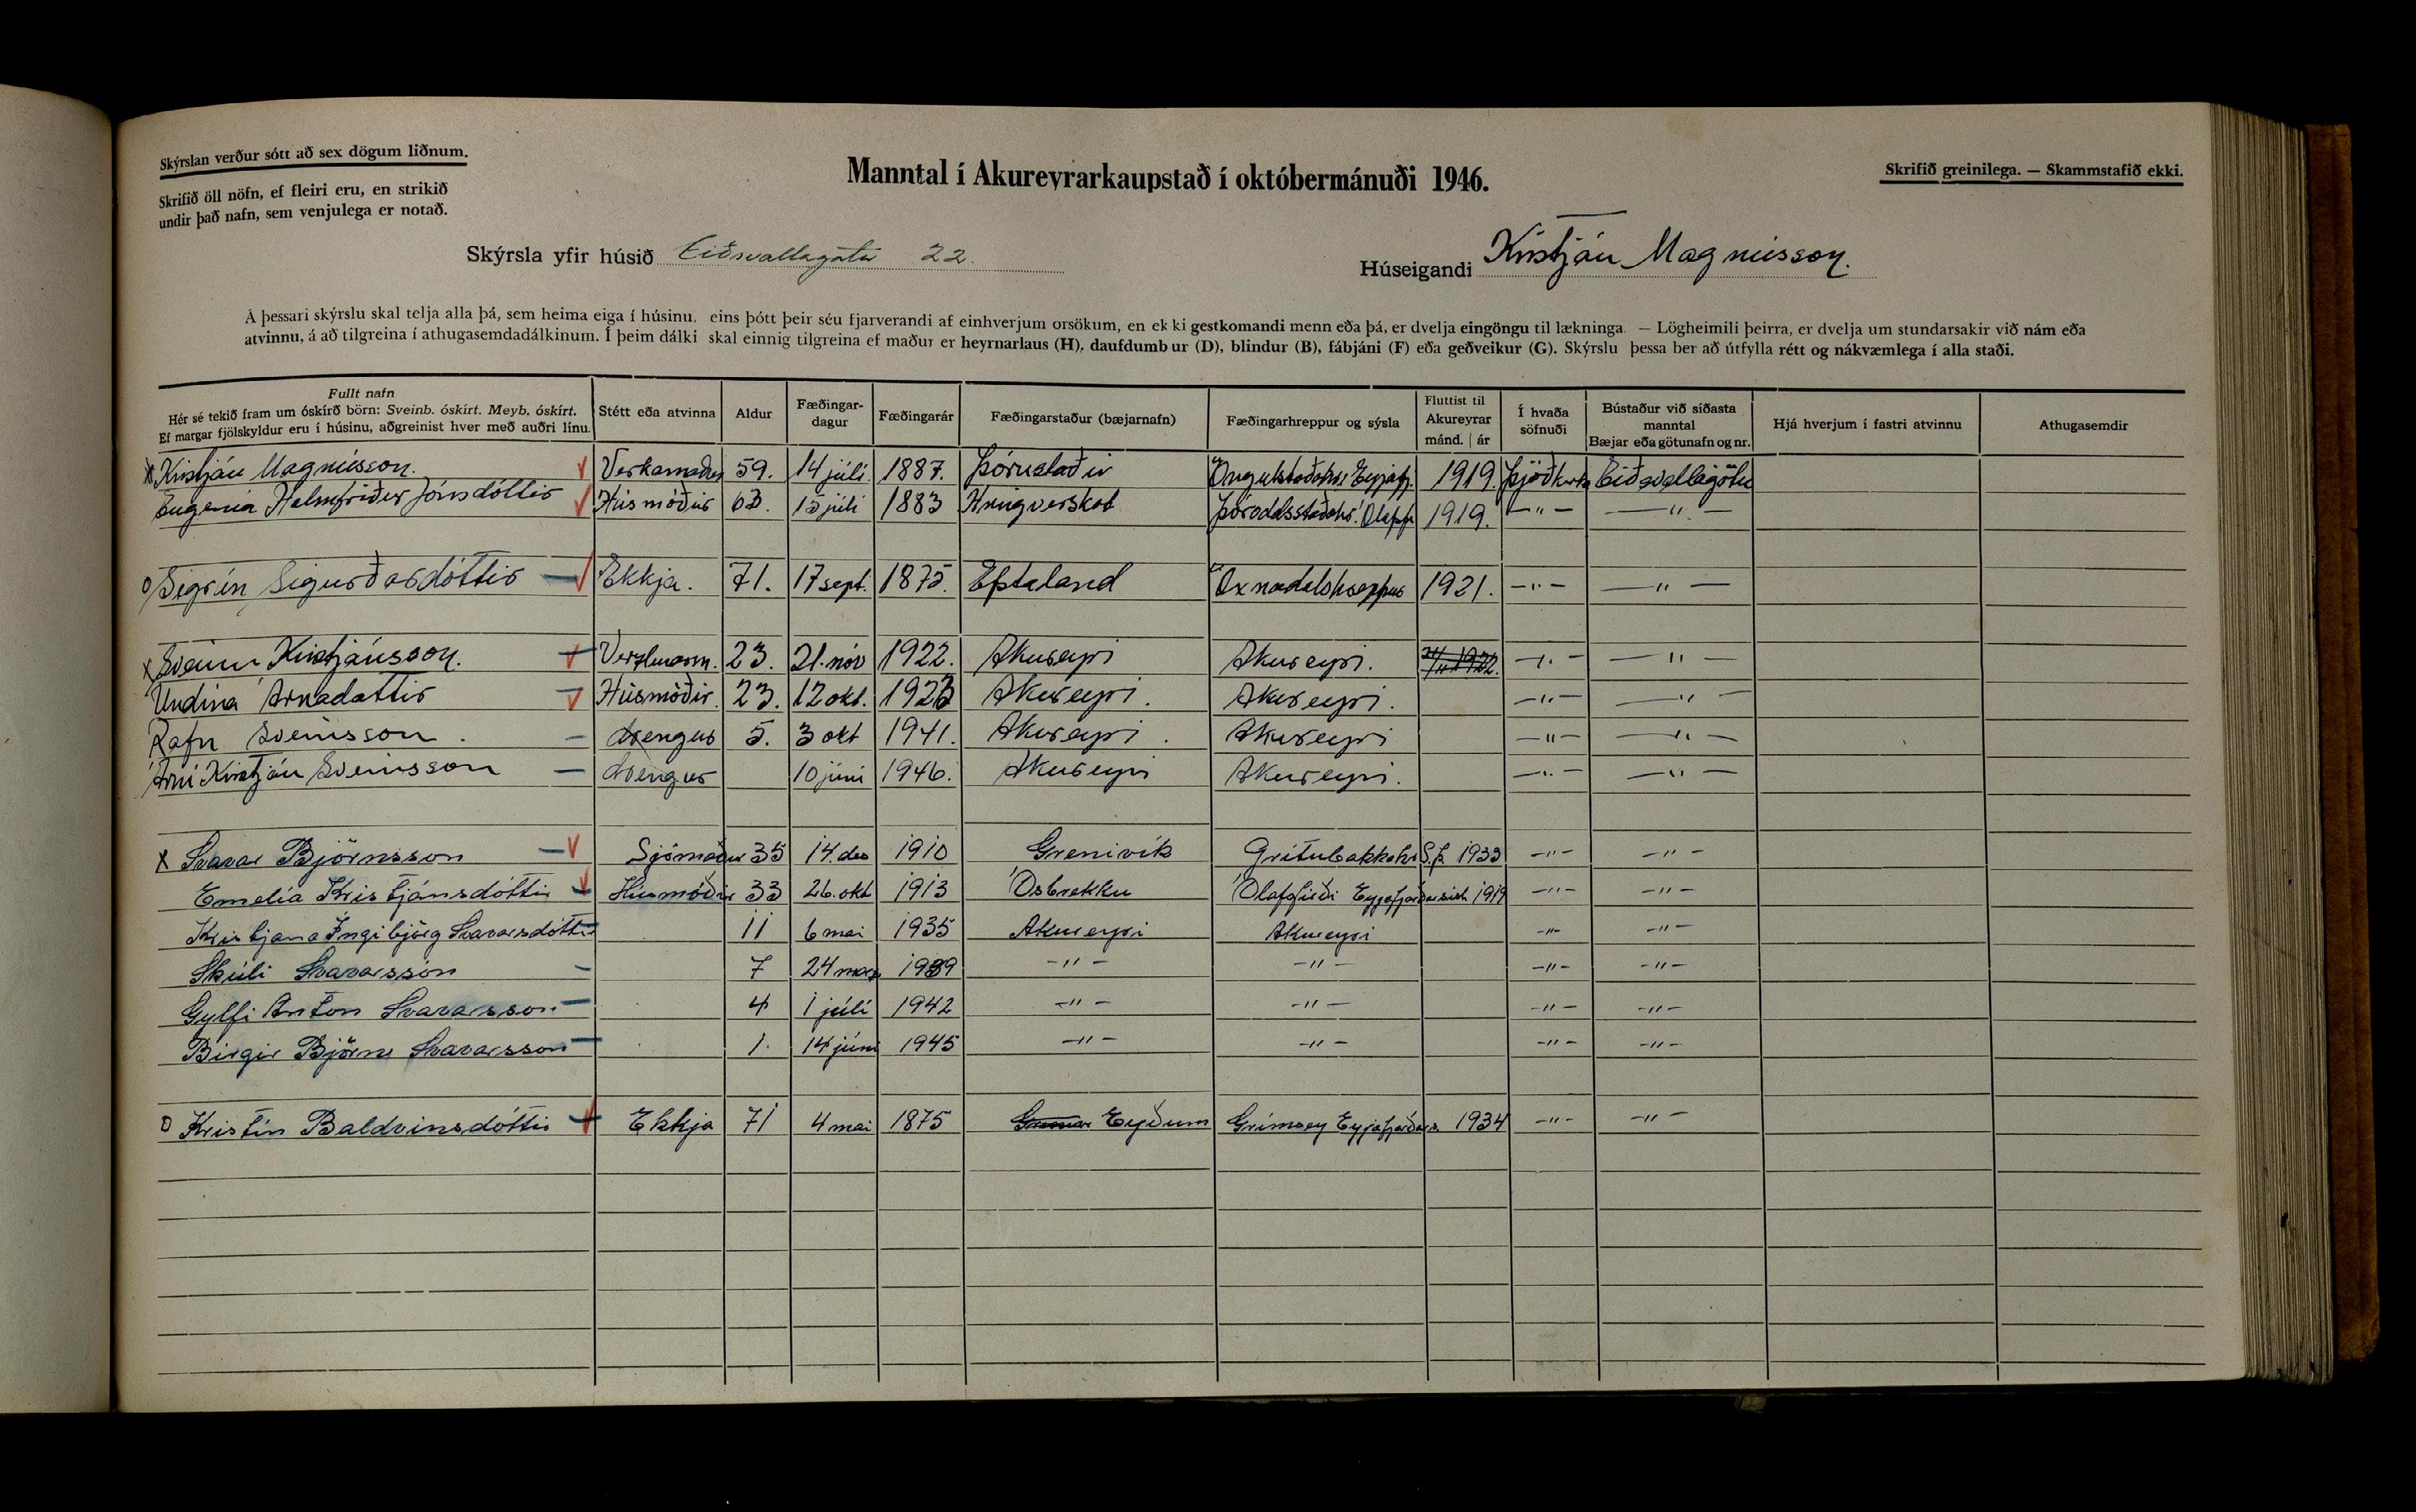 Skýrslan verður sótt að sex dögum liðnum.
Skrifið öll nöfn, ef fleiri eru, en strikið
undir það nafn, sem venjulega er notað.
Manntal í Akureyrarkaupstað í októbermánuði 1946.
Skrifið greinilega. — Skammstafið ekki.
Skýrsla yfir húsið Eiðsvallagata 22.
Húseigandi Kristján Magnússon.
Á þessari skýrslu skal telja alla þá, sem heima eiga í húsinu, eins þótt þeir séu fjarverandi af einhverjum orsökum, en ek ki gestkomandi menn eða þá, er dvelja eingöngu til lækninga. — Lögheimili þeirra, er dvelja um stundarsakir við nám eða
atvinnu, á að tilgreina í athugasemdadálkinum. Í þeim dálki skal einnig tilgreina ef maður er heyrnarlaus (H), daufdumb ur (D), blindur (B), fábjáni (F) eða geðveikur (G). Skýrslu þessa ber að útfylla rétt og nákvæmlega í alla staði.
Fullt nafn
Hér sé tekið fram um óskírð börn: Sveinb. óskírt. Meyb. óskírt.
Ef margar fjölskyldur eru í húsinu, aðgreinist hver með auðri línu.
Stétt eða atvinna
Aldur
Fæðingar-
dagur
Fæðingarár
Fæðingarstaður (bæjarnafn)
Fæðingarhreppur og sýsla
Fluttist til
Akureyrar
mánd. | ár
Í hvaða
söfnuði
Bústaður við síðasta
manntal
Bæjar eða götunafn og nr.
Hjá hverjum í fastri atvinnu
Athugasemdir
x Kristján Magnússon. Verkamaður 59. 14 júlí. 1887. Þórustaðir Öngulstaðahr. Eyjafj. 1919. Þjóðkirkj Eiðsvallagötu
Eugenía Holmfríður Jónsdóttir Húsmóðir 63. 15 júlí 1883 Hringverskot Þóroddsstaðahr. Ólafsf. 1919. —"— —"—
o Sigrún Sigurðardóttir Ekkja. 71. 17 sept. 1875. Efstaland Öxnadalshreppur 1921. —"— —"—
x Sveinn Kristjánsson. Verzlunarm. 23. 21. nóv 1922. Akureyri Akureyri. —"— —"—
Undína Árnadóttir Húsmóðir. 23. 12 okt. 1923 Akureyri. Akureyri. —"— —"—
Rafn Sveinsson. drengur 5. 3 okt 1941. Akureyri. Akureyri —"— —"—
Árni Kristján Sveinsson drengur 10 júní 1946. Akureyri Akureyri. —"— —"—
x Svavar Björnsson Sjómaður 35 14. des 1910 Grenivík Grítubakkahr S.Þ. 1933 —"— —"—
Emelía Kristjánsdóttir Húsmóðir 33 26. okt 1913 Ósbrekku Ólafsfirði Eyjafjarðarsísl 1919 —"— —"—
Kristjana Ingibjörg Svavarsdóttir 11 6 mai 1935 Akureyri Akureyri —"— —"—
Skúli Svavarsson 7 24 mars 1939 —"— —"— —"— —"—
Gylfi Anton Svavarsson 4 1 júlí 1942 —"— —"— —"— —"—
Birgir Björn Svavarsson 1. 14 júní 1945 —"— —"— —"— —"—
o Kristín Baldvinsdóttir Ekkja 71 4 mai 1875 Eyðum Grímsey Eyjafjarðars. 1934 —"— —"—